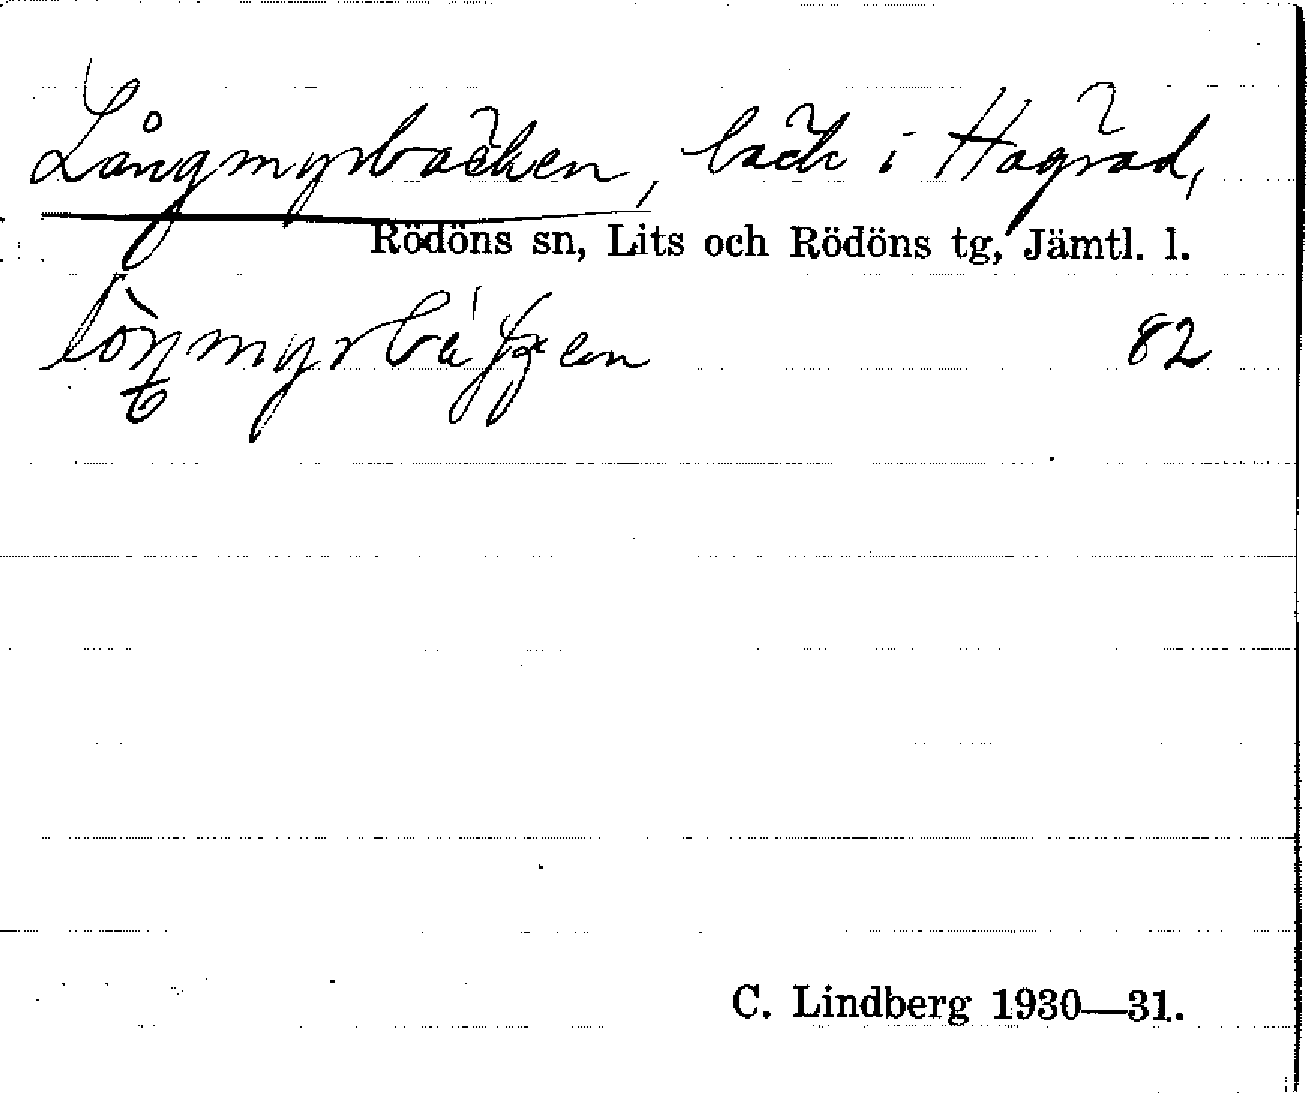 Långmyrbäcken, bäck i Hägrad,
Rödöns sn, Lits och Rödöns tg, Jämtl. l.
82
C. Lindberg 1930—31.